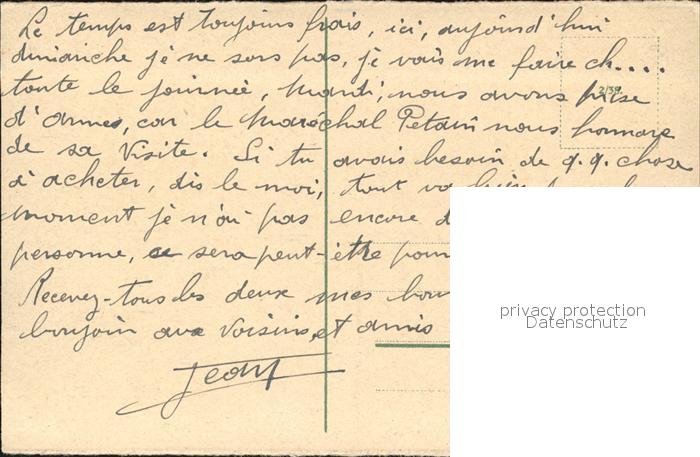 Le temps est toujours frais, ici, aujourd'hui
dimanche je ne sors pas, je vais me faire ch....
toute la journée, Mardi, nous avons prise
d'armes, car le Maréchal Petain nous honnore
de sa Visite. Si tu avais besoin de q.q. chose
d'acheter, dis le moi, tout va
moment je n'ai pas encore
personne, ce sera peut-être pour
Recevez-tous les deux mes
bonjour aux Voisins, et amis
Jean
2139
privacy protection
Datenschutz